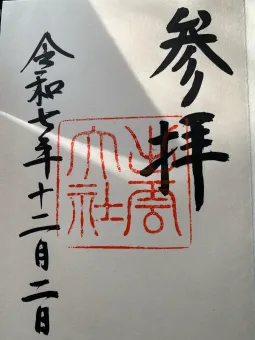 参拝
出雲
大社
令和七年十二月二日